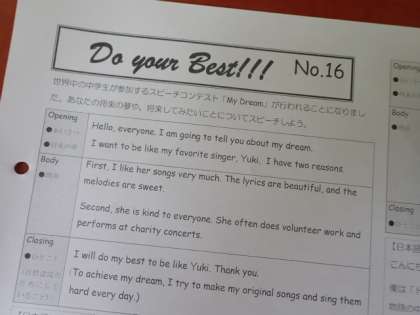 Do your Best!!! No.16
世界中の中学生が参加するスピーチコンテスト「My Dream」が行われることになりまし
た。あなたの将来の夢や、将来してみたいことについてスピーチしよう。
Opening
Hello, everyone. I am going to tell you about my dream.
I want to be like my favorite singer, Yuki. I have two reasons.
Body
First, I like her songs very much. The lyrics are beautiful, and the
melodies are sweet.
Second, she is kind to everyone. She often does volunteer work and
performs at charity concerts.
Closing
I will do my best to be like Yuki. Thank you.
(To achieve my dream, I try to make my original songs and sing them
hard every day.)
Opening
Body
Closing
【日本語
こんにち
俺は「